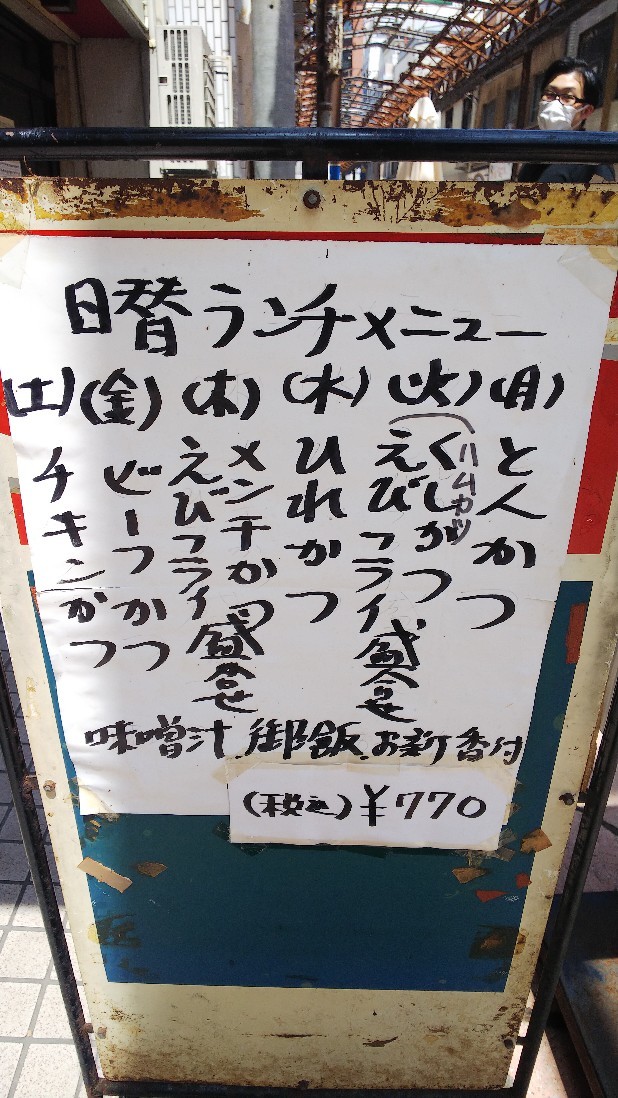 日替ランチメニュー
(月)
とんかつ
(火)
ハムカツ
くしかつ
えびフライ盛合せ
(水)
ひれかつ
(木)
メンチかつ
えびフライ盛合せ
(金)
ビーフかつ
(土)
チキンかつ
味噌汁.御飯.お新香付
(税込)¥770